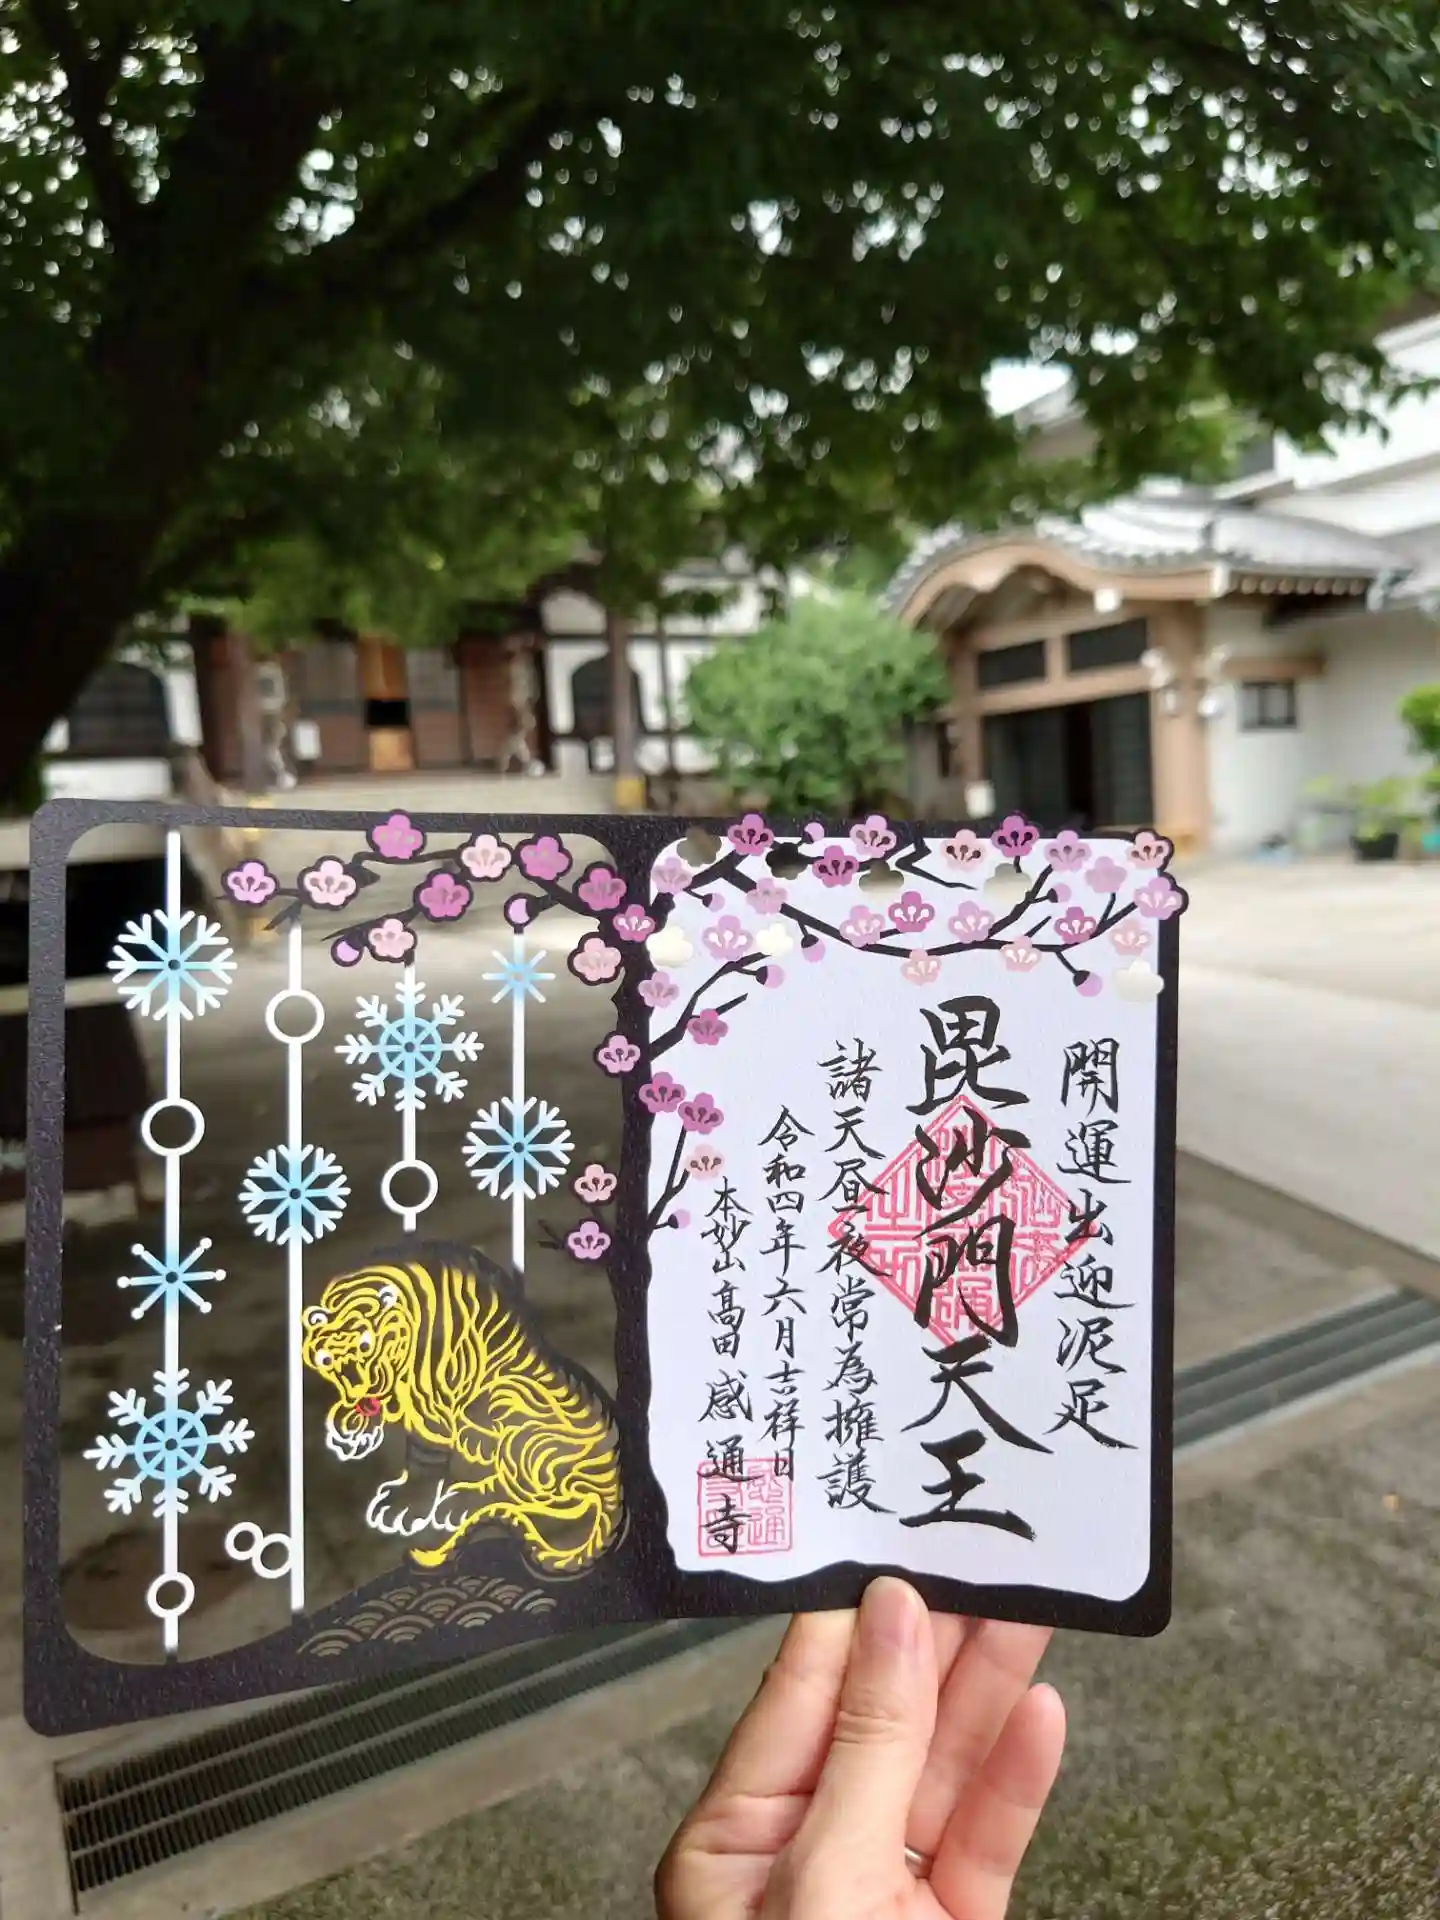 開運出迎泥足
毘沙門天王
諸天昼夜常為擁護
令和四年六月吉祥日
本妙山高田感通寺